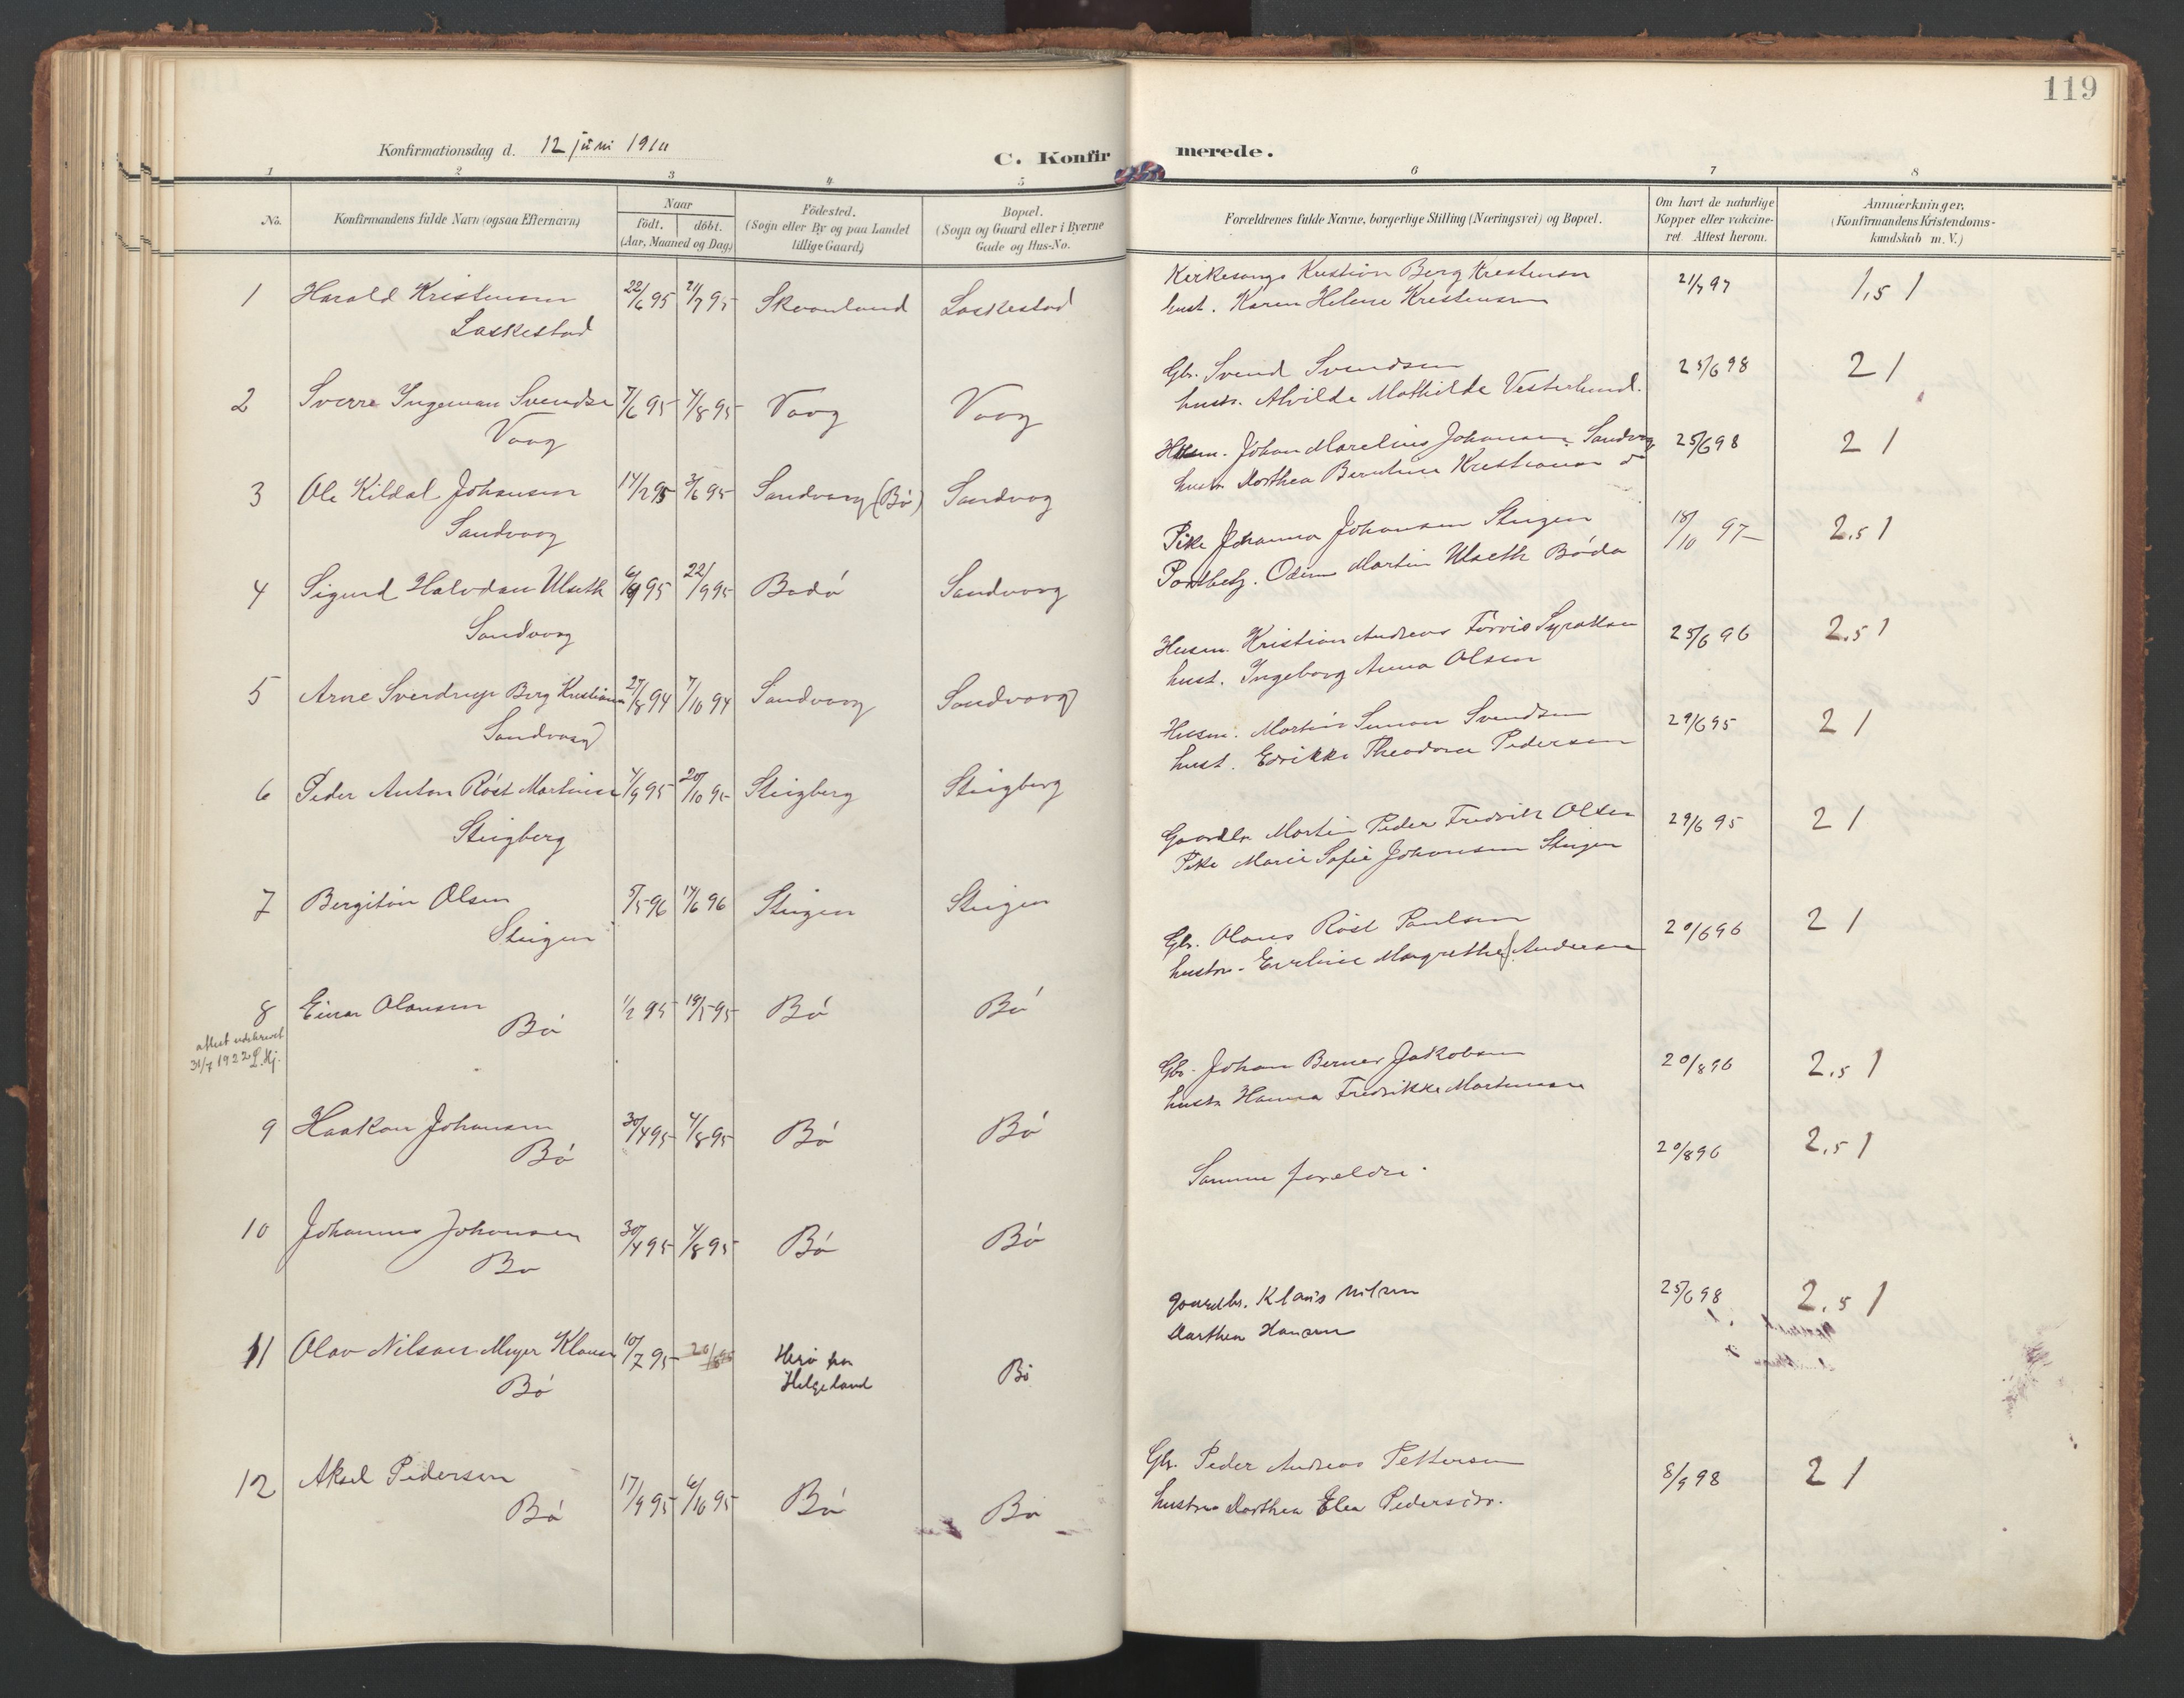 119
Konfirmationsdag d. 12 juni 1910
C. Konfirmerede.
1 2 3 4 5 6 7 8
No.
Konfirmandens fulde Navn (ogsaa Efternavn)
Naar
født. døbt.
(Aar, Maaned og Dag)
Fødested.
(Sogn eller By og paa Landet
tillige Gaard)
Bopæl.
(Sogn og Gaard eller i Byerne
Gade og Hus-No.
Forældrenes fulde Navne, borgerlige Stilling (Næringsvei) og Bopæl.
Om havt de naturlige
Kopper eller vakcine-
ret. Attest herom.
Anmærkninger,
(Konfirmandens Kristendoms-
kundskab m. V.)
1 Harald Kristensen 22/6 95 21/7 95 Skaanland Laskestad
Laskestad
Kirkesangr Kristian Berg Kristensen 21/7 97 1,5 1
hust. Karen Helene Kristensen
2 Sverre Ingeman Svendsen 7/6 95 4/8 95 Vaag Vaag
Vaag
Gbr. Svend Svendsen 25/6 98 2 1
hustr. Alvilde Mathilde Vesterlund.
3 Ole Kildal Johansen 14/2 95 3/6 95 Sandvaag (Bø) Sandvaag
Sandvaag
Husm. Johan Marelius Johansen Sandvag 25/6 98 2 1
hustr. Dorthea Berntine Kristiansen do
4 Sigurd Halvdan Ulseth 6/9 95 22/9 95 Bodø Sandvaag
Sandvaag
Pike Johanna Johansen Steigen 18/10 97 2,5 1
Postbetj. Odin Martin Ulseth Bodø
5 Arne Sverdrup Berg Kristiansen 27/8 94 7/10 94 Sandvaag Sandvaag
Sandvaag
Husm. Kristian Andreas Syvertsen 25/6 96 2,5 1
hust. Ingeborg Anna Olsen
6 Peder Anton Røst Martinsen 4/9 95 20/10 95 Steigberg Steigberg
Steigberg
Husm. Martin Simon Svendsen 29/6 95 2 1
hust. Edrikke Theodora Pedersen
7 Bergiton Olsen 5/5 96 14/6 96 Steigen Steigen
Steigen
Gaardbr Martin Peder Fredrik Olsen 29/6 95 2 1
Pike Marie Sofie Johansen Steigen
8 Einar Olausen 1/2 95 19/5 95 Bø Bø
Bø
attest udskrevet
31/7 1922 L.Hj.
Gbr. Olaus Røst Paulsen 20/6 96 2 1
hustr. Eveline Margrethe Andersen
9 Haakon Johansen 30/4 95 4/8 95 Bø Bø
Bø
Gbr. Johan Berner Jakobsen 20/8 96 2,5 1
hustr Hanna Fredrikke Martinsen
10 Johannes Johansen 30/4 95 4/8 95 Bø Bø
Bø
Samme foreldre. 20/8 96 2,5 1
11 Olav Nilsen Meyer Klausen 10/7 95 Herø paa Helgeland Bø
Bø
gaardbr. Klaus Nilsen 25/6 98 2,5 1
Dorthea Hansen
12 Aksel Pedersen 17/9 95 6/10 95 Bø Bø
Bø
Gbr. Peder Andreas Pettersen 8/9 98 2 1
hustru Dorthea Elea Pedersdtr.